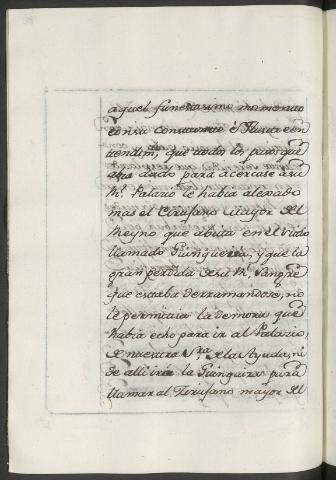 aquel funestisimo momento
con su constante è ilustre en
tendim.to que todos los pasos que
abia dado para acercase a su
R.l Palacio le habia alexado
mas el Cirujano Mayor del
Reyno que abita en el Vido
llamado Giunqueria, y que la
gran perdida de su R.l Sangre
que estaba derramandose, no
le permitia la demora que
habia echo para ir al Palacio
de nuestra S.ra de la Ayuda, ni
de alli ir a la Giunquira para
llamar al Cirujano mayor del